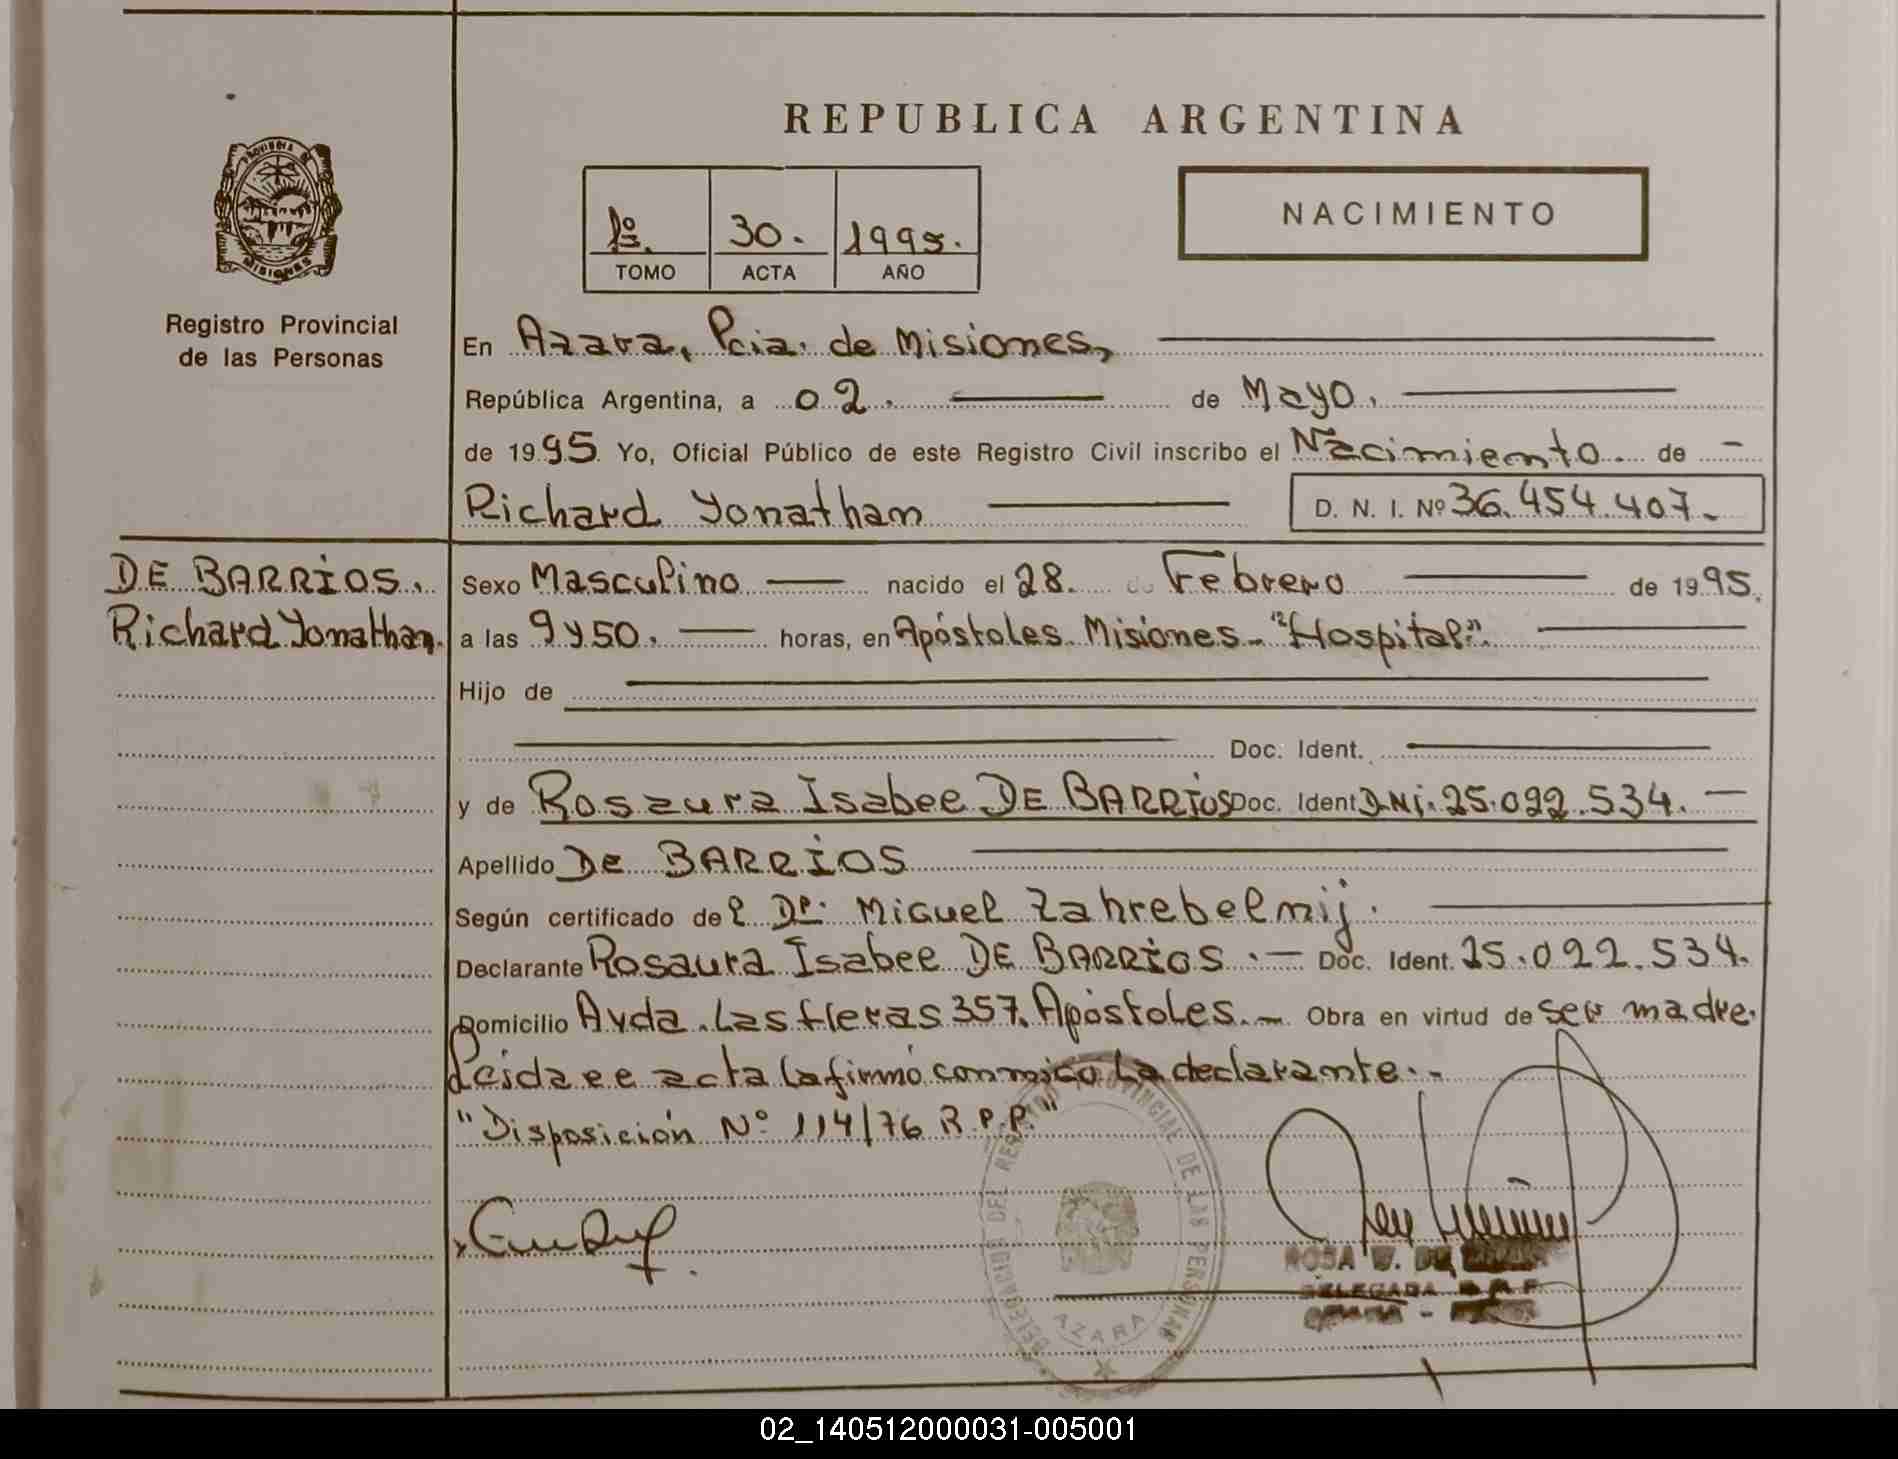 REPUBLICA ARGENTINA
PROVINCIA DE
MISIONES
Registro Provincial
de las Personas
1º. 30. 1995.
TOMO ACTA AÑO
NACIMIENTO
En Azara, Pcia. de Misiones,
República Argentina, a 02. de Mayo.
de 1995 Yo, Oficial Público de este Registro Civil inscribo el Nacimiento de
Richard Yonathan D. N. I. Nº 36.454.407.
DE BARRIOS.
Richard Yonathan.
Sexo Masculino nacido el 28. de Febrero de 1995.
a las 9 y 50. horas, en Apóstoles. Misiones - "Hospital".
Hijo de
Doc. Ident.
y de Rosaura Isabel DE BARRIOS Doc. Ident D.N.i. 25.022.534.
Apellido De BARRIOS
Según certificado del Dr. Miguel Zahrebelnij.
Declarante Rosaura Isabel DE BARRIOS. Doc. Ident. 25.022.534.
Domicilio Avda. Las Heras 357. Apóstoles. Obra en virtud de ser madre.
Leida el acta la firmó conmigo la declarante.
"Disposición Nº 114/76 R.P.P."
DELEGACION DEL REGISTRO PROVINCIAL DE LAS PERSONAS
AZARA
ROSA W. DE
DELEGADA R.P.P.
AZARA -
02_140512000031-005001